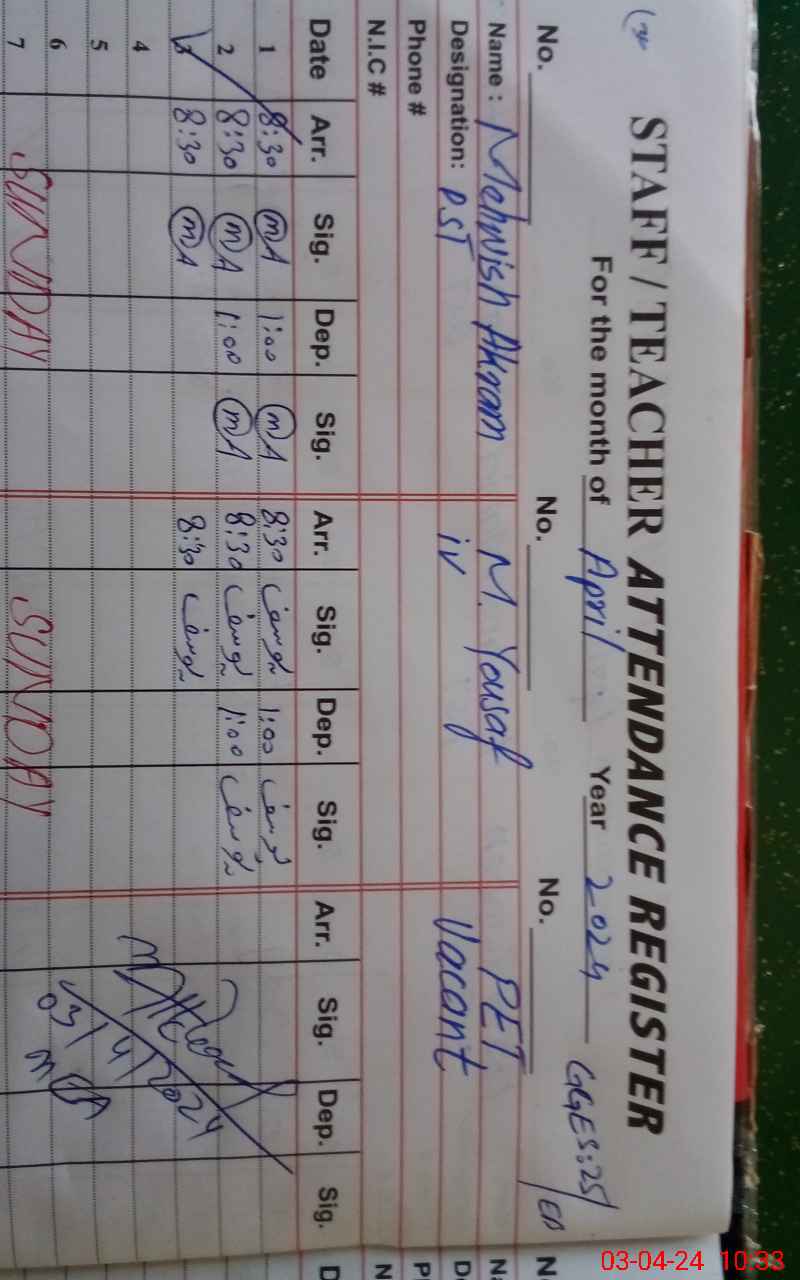 STAFF / TEACHER ATTENDANCE REGISTER
For the month of April Year 2024 GGES:25/EB
No. No. No. N
Name : Mehwish Akram M. Yousaf PET Na
Designation: P.S.T iv Vacant De
Phone # Ph
N.I.C # N
Date Arr. Sig. Dep. Sig. Arr. Sig. Dep. Sig. Arr. Sig. Dep. Sig. D
1 8:30 mA 1:00 mA 8:30 یوسف 1:00 یوسف
2 8:30 mA 1:00 mA 8:30 یوسف 1:00 یوسف
3 8:30 mA 8:30 یوسف
4
5
6
7 SUNDAY SUNDAY
03/4/2024
03-04-24 10:33